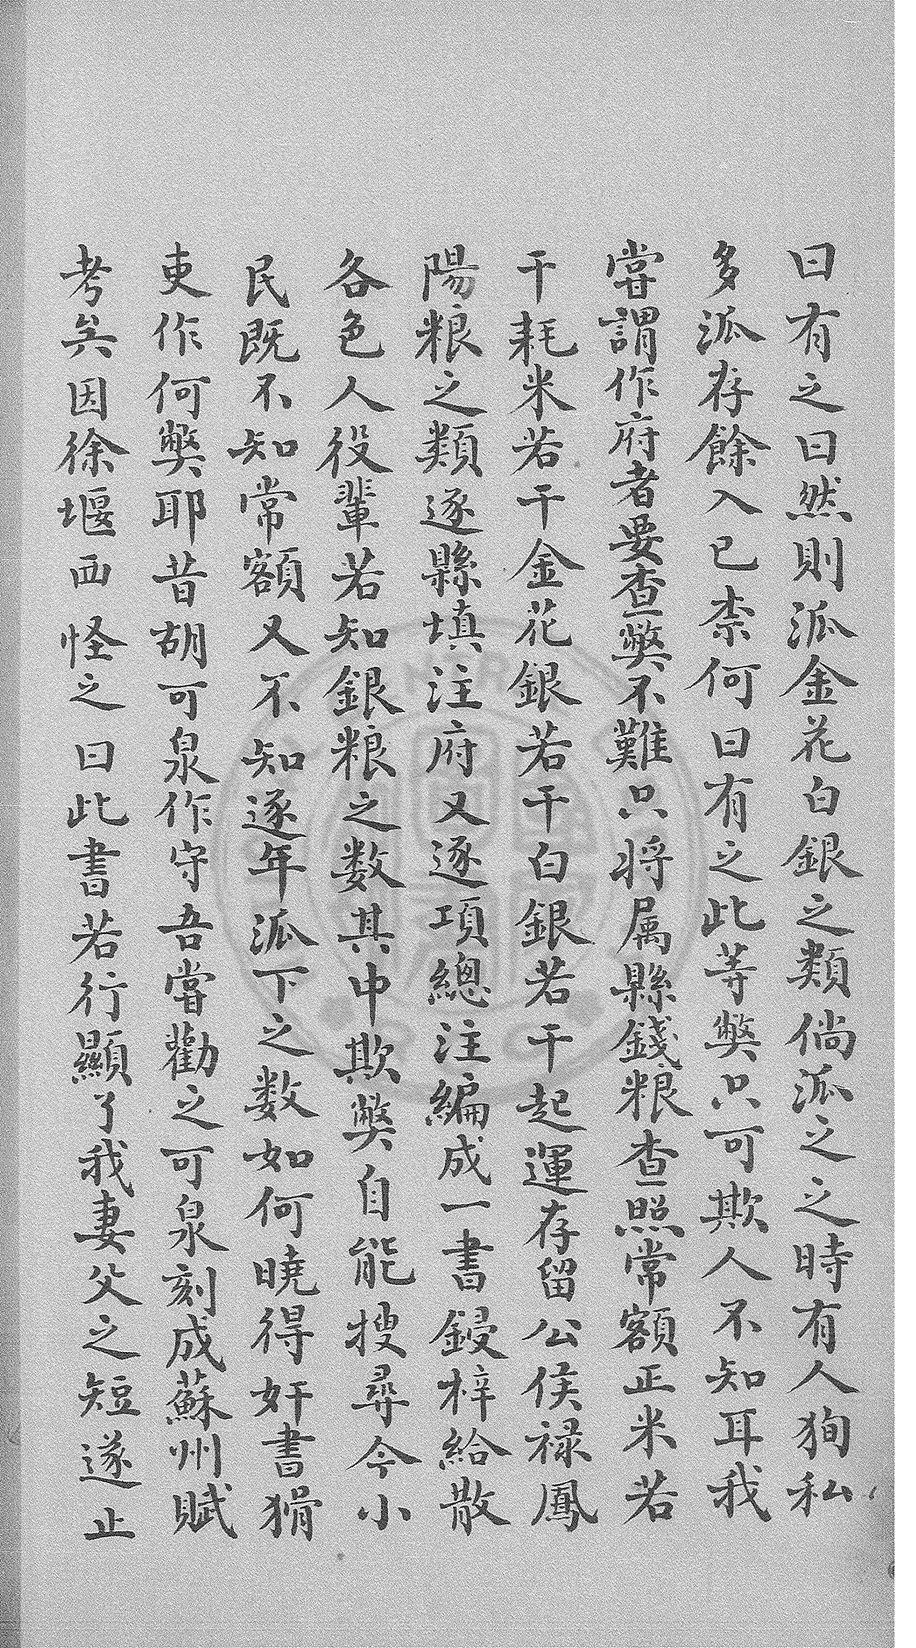 曰有之曰然則泒金花白銀之類倘泒之之時有人狥私
多泒存餘入已柰何曰有之此等獘只可欺人不知耳我
甞謂作府者要查獘不難只将属縣錢粮查照常額正米若
干耗米若干金花銀若干白銀若干起運存留公侯禄鳳
陽粮之類逐縣填注府又逐項總注編成一書鋟梓給散
各色人役輩若知銀粮之数其中欺獘自能搜尋今小
民既不知常額又不知逐年泒下之数如何曉得奸書猾
吏作何獘耶昔胡可泉作守吾甞勸之可泉刻成蘇州賦
考矣因徐堰西怪之曰此書若行顯了我妻父之短遂止